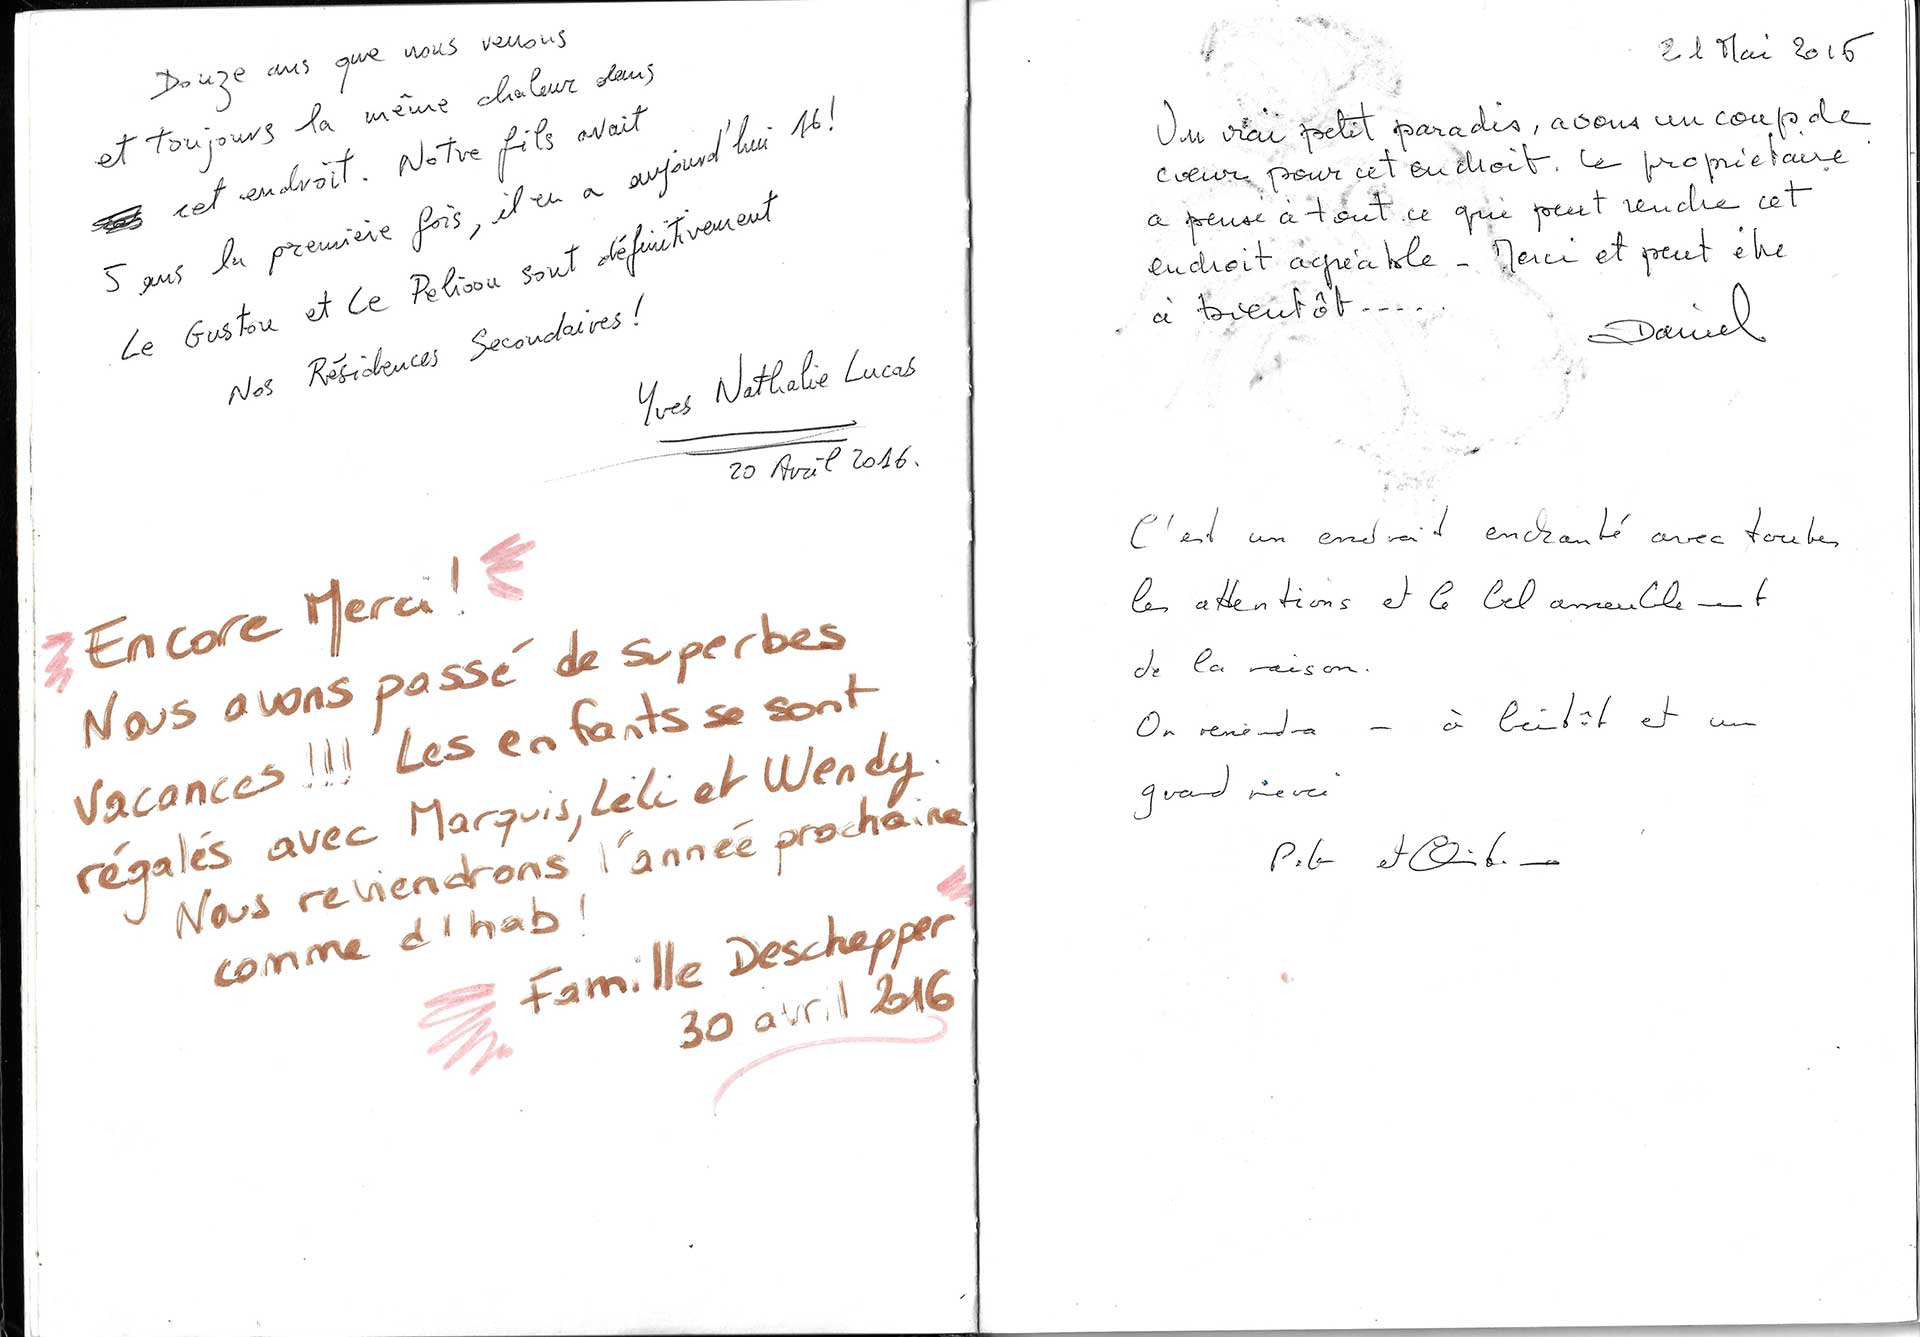 Douze ans que nous venons
et toujours la même chaleur dans
cet endroit. Notre fils avait
5 ans la première fois, il en a aujourd'hui 16!
Le Gustou et Le Pelicou sont définitivement
Nos Résidences Secondaires!
Yves Nathalie Lucas
20 Avril 2016.
Encore Merci!
Nous avons passé de superbes
vacances !!! Les enfants se sont
régalés avec Marquis, Lili et Wendy.
Nous reviendrons l'année prochaine
comme d'hab!
Famille Deschepper
30 avril 2016
21 Mai 2016
Un vrai petit paradis, avons un coup de
coeur pour cet endroit. Le propriétaire
a pensé à tout ce qui peut rendre cet
endroit agréable - Merci et peut être
à bientôt-----
Daniel
C'est un endroit enchanté avec toutes
les attentions et le bel ameublement
de la maison.
On reviendra - à bientôt et un
grand merci
et